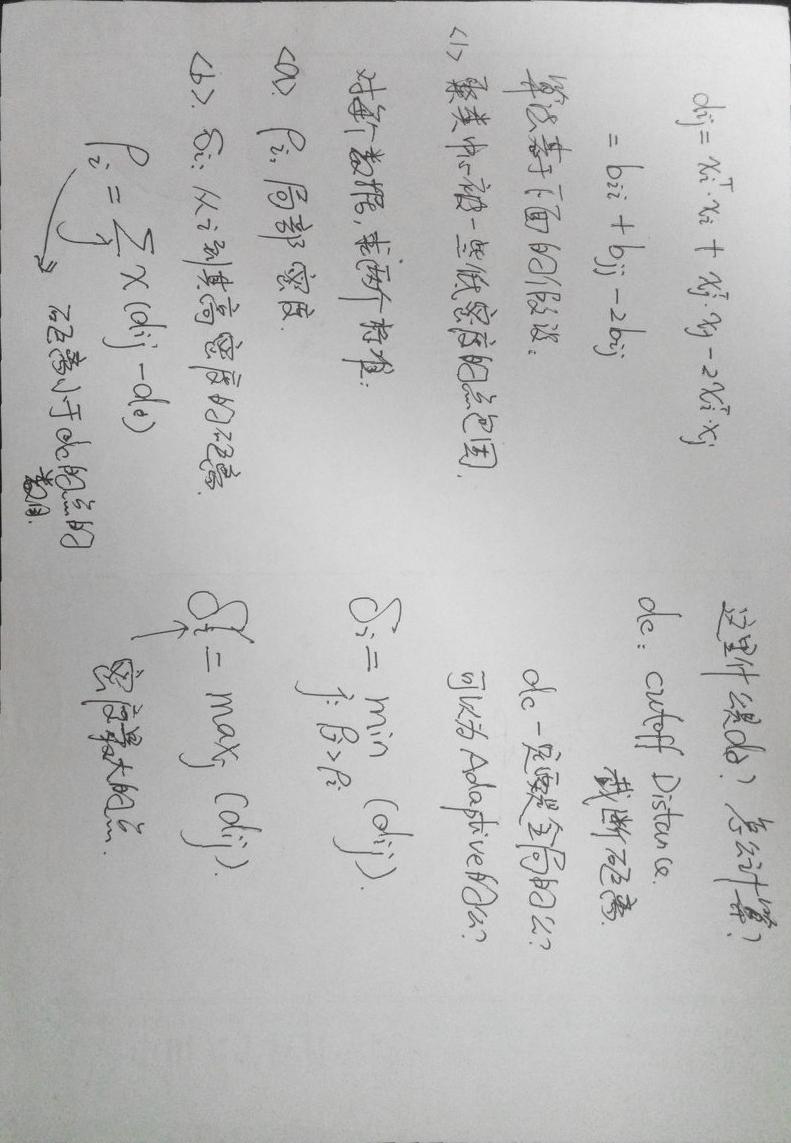 dij = xiᵀ·xi + xjᵀ·xj - 2xiᵀ·xj
= bii + bjj - 2bij
算法基于下面的假设:
<1> 聚类中心被一些低密度的点包围.
对每个数据,求两个标准:
<a> ρi, 局部密度.
<b>. δi: 从i到其高密度的距离.
ρi = Σj χ(dij - dc)
距离小于dc的点的
数目.
这里什么是dc? 怎么计算?
dc: cutoff Distance.
截断距离.
dc一定要是全局的么?
可以为Adaptive的么?
δi = min (dij).
j: ρj>ρi
δi = maxj (dij).
密度最大的点.